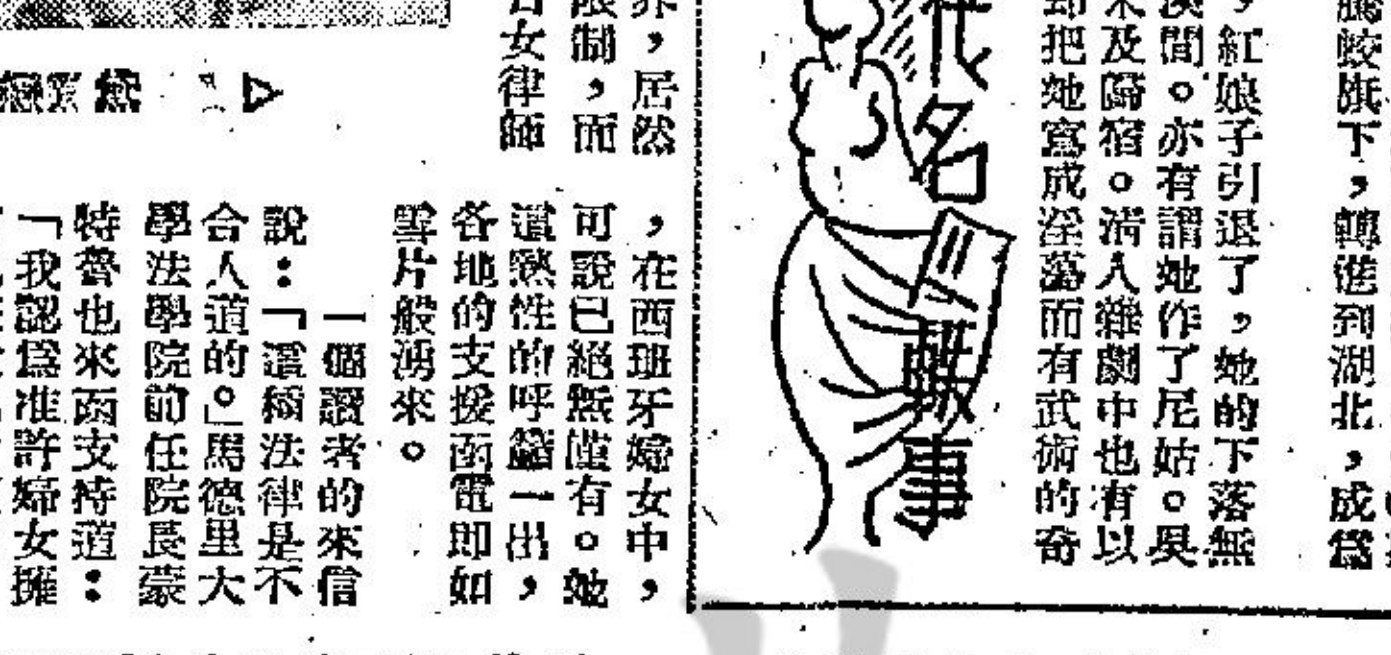 騰蛟旗下，轉進到湖北，成為
，紅娘子引退了，她的下落無
溪間。亦有謂她作了尼姑。吳
未及隔宿。清人雜劇中也有以
却把她寫成淫蕩而有武術的奇
名
軼事
，居然
限制，而
女律師
，在西班牙婦女中，
可說已絕無僅有。她
這熱性的呼籲一出，
各地的支援函電即如
雪片般湧來。
一個讀者的來信
說：「這種法律是不
合人道的。」馬德里大
學法學院前任院長蒙
特魯也來函支持道：
「我認為准許婦女擁